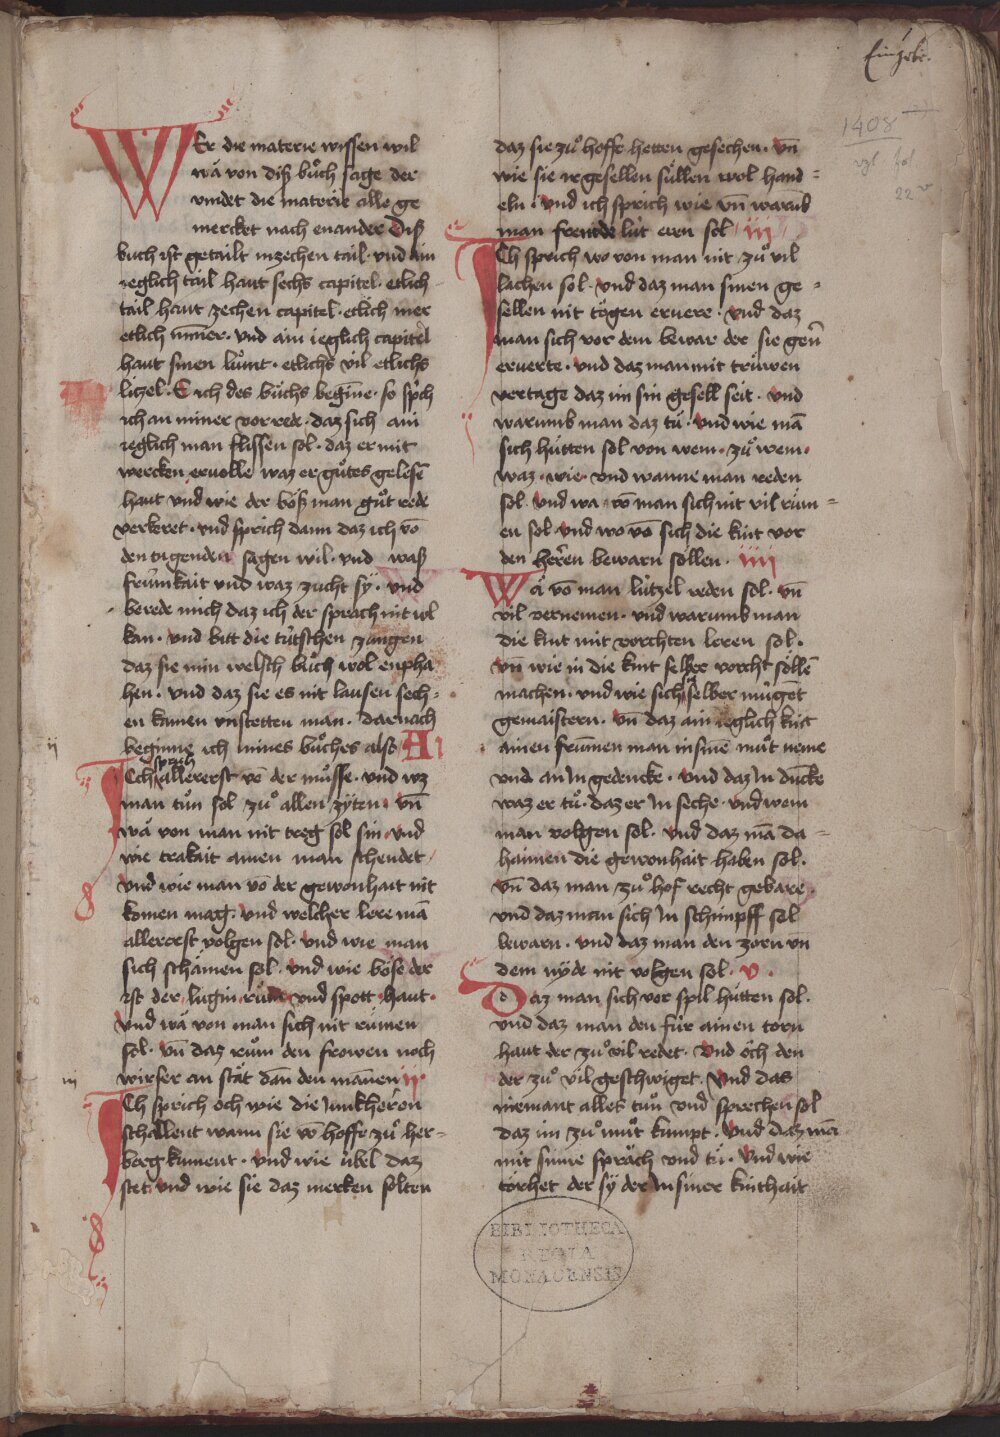 Einzele.
1408
vgl. fol.
22v
WEr die materie wissen wil
wá von diß bůch sage der
vindet die materie alle ge
mercket nach enander Diß
buch ist getailt inzechen tail · vnd ain
ieglich tail haut sechs capitel · etlich
tail haut zechen capitel · etlich mer
etlich minner · vnd ain ieglich capitel
haut sinen lůmt · etlichs vil etlichs
lützel · E ich des bůchs begiñe · so sprich
ich an miner vorrede · daz sich ain
ieglich man flissen sol · daz er mit
wercken ervolle waz er gůtes gelesē
haut vnd wie der böß man gůt rede
verkeret · vnd sprich dann daz ich vō
den tugenden sagen wil · vnd waß
frümkait vnd waz zucht sy · vnd
berede mich daz ich der sprach nit wl
kan · vnd bitt die tütschen zungen
daz sie min welsch bůch wol enpha
hen · vnd daz sie es nit lausen sech=
en kainen vnstetten man · Darnach
beginne ich mines bůches alsß A
ii
ICh sprich allererst vō der můsse · vnd wz
man tůn sol zů allen zyten · vñ
wá von man nit treg sol sin · vnd
wie trakait ainen man schendet
vnd wie man vō der gewonhait nit
komen mag · vnd welcher lere mā
allererst volgen sol · vnd wie man
sich schámen sol · vnd wie böse der
ist der lugin rům vnd spott haut ·
vnd wá von man sich nit rümen
sol · vñ daz rům den frowen noch
wirser an stát dañ den mañen ii ·
iii
ICh sprich och wie die Junkherrn
schallent wann sie vō hoffe zů her=
berg koment · vnd wie übel daz
stet vnd wie sie daz merken solten
daz sie zů hoffe hetten gesechen · vñ
wie sie ir gesellen süllen wol hand=
eln · vnd ich sprich wie vñ warūb
man fremde lüt eren sol iii
ICh sprich wo von man nit zů vil
lachen sol · vnd daz man sinen ge=
sellen nit tögen ervere · vnd daz
man sich vor dem bewar der sie gern
erverte · vnd daz man mit trüwen
vertage daz im sin gesell seit · vnd
warumb man daz tů · vnd wie mā
sich hütten sol von wem · zů wem ·
waz · wie · vnd wanne man reden
sol · vnd wa vō man sich nit vil rüm=
en sol vnd wo vō sich die kint vor
den herren bewarn sollen · iiii
WA vō man lützel reden sol · vñ
vil vernemen · vnd warumb man
die kint mit vorchten leren sol ·
vñ wie in die kint selber vorcht söllē
machen · vnd wie sich selber mügēt
gemaistern · vñ daz ain ieglich kint
ainen frummen man insinē můt neme
vnd an In gedencke · vnd daz In dūcke
waz er tů · daz er In seche · vnd wem
man volgen sol · vnd daz mā da=
haimen die gewonhait haben sol ·
vñ daz man zů hof recht gebare ·
vnd daz man sich In schimpff sol
bewarn · vnd daz man den zorn vñ
dem nyde nit volgen sol · v ·
Daz man sich vor spil hütten sol ·
vnd daz man den für ainen torn
haut der zů vil redet · vnd óch den
der zů vil geschwiget · vnd das
niemant alles tůn vnd sprechen sol
daz im zů můt kumpt · vnd daz mā
mit sinne sprách vnd tů · vnd wie
torhet der sy der In siner kinthait
BIBLIOTHECA
REGIA
MONACENSIS